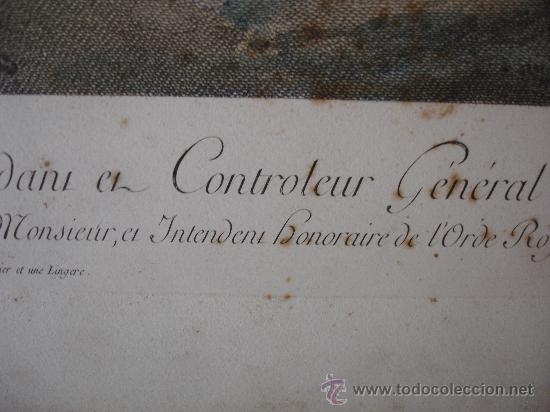 dant et Controleur Général
Monsieur, et Intendent honoraire de l'Orde Roy
ier et une Lingere.
todocoleccion
© www.todocoleccion.net